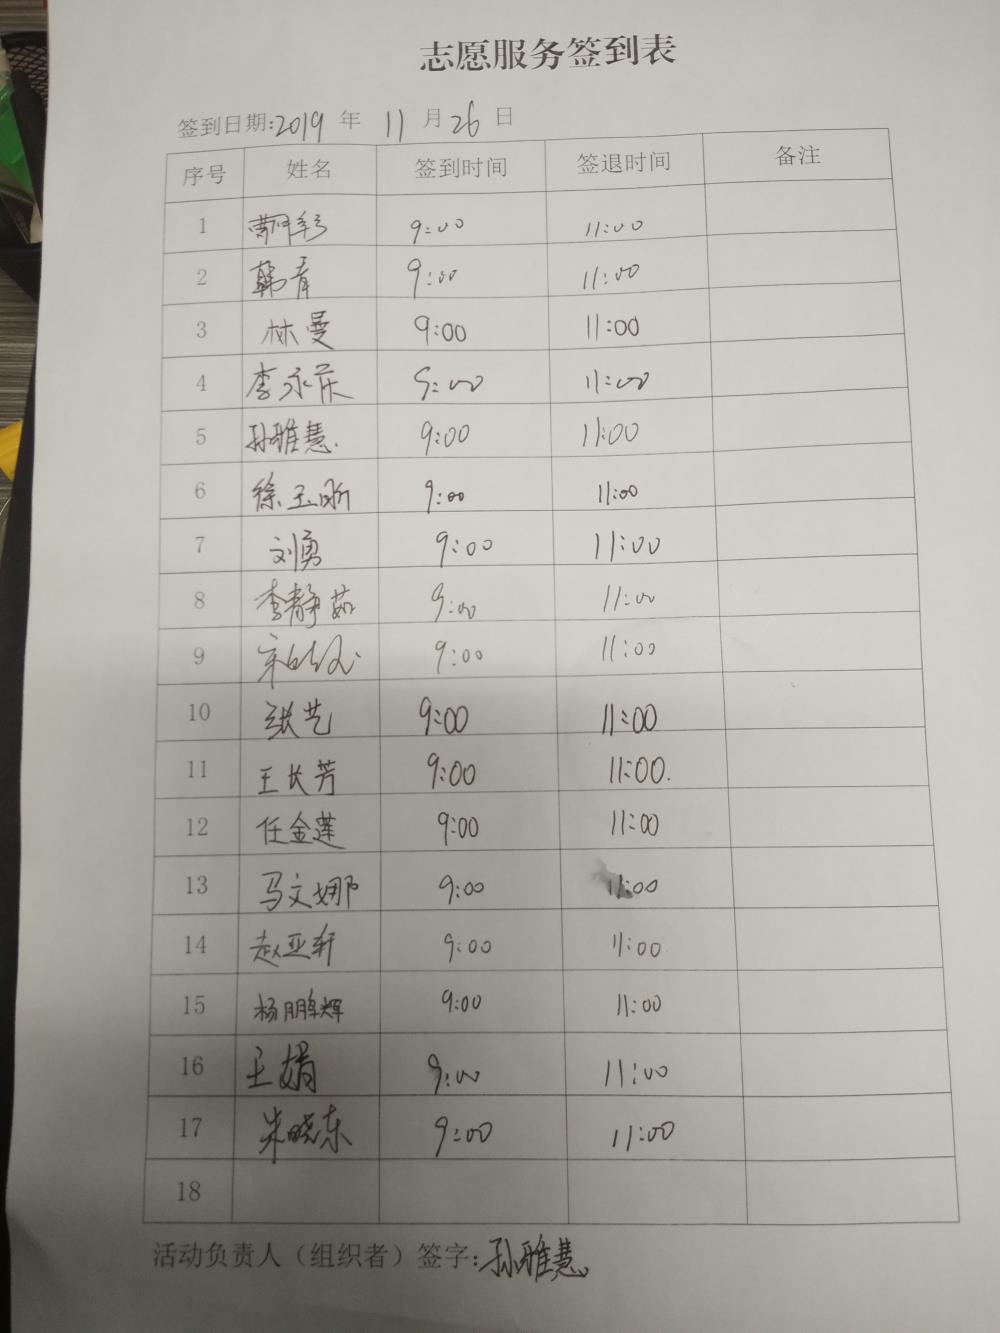 志愿服务签到表
签到日期:2019 年 11 月 26 日
序号 姓名 签到时间 签退时间 备注
1 9:00 11:00
2 韩青 9:00 11:00
3 林曼 9:00 11:00
4 李永庆 9:00 11:00
5 孙雅慧 9:00 11:00
6 徐玉昕 9:00 11:00
7 刘勇 9:00 11:00
8 李静茹 9:00 11:00
9 9:00 11:00
10 张艺 9:00 11:00
11 王长芳 9:00 11:00
12 任金莲 9:00 11:00
13 马文娜 9:00 11:00
14 赵亚轩 9:00 11:00
15 杨鹏辉 9:00 11:00
16 王娟 9:00 11:00
17 朱晓东 9:00 11:00
18
活动负责人（组织者）签字:孙雅慧